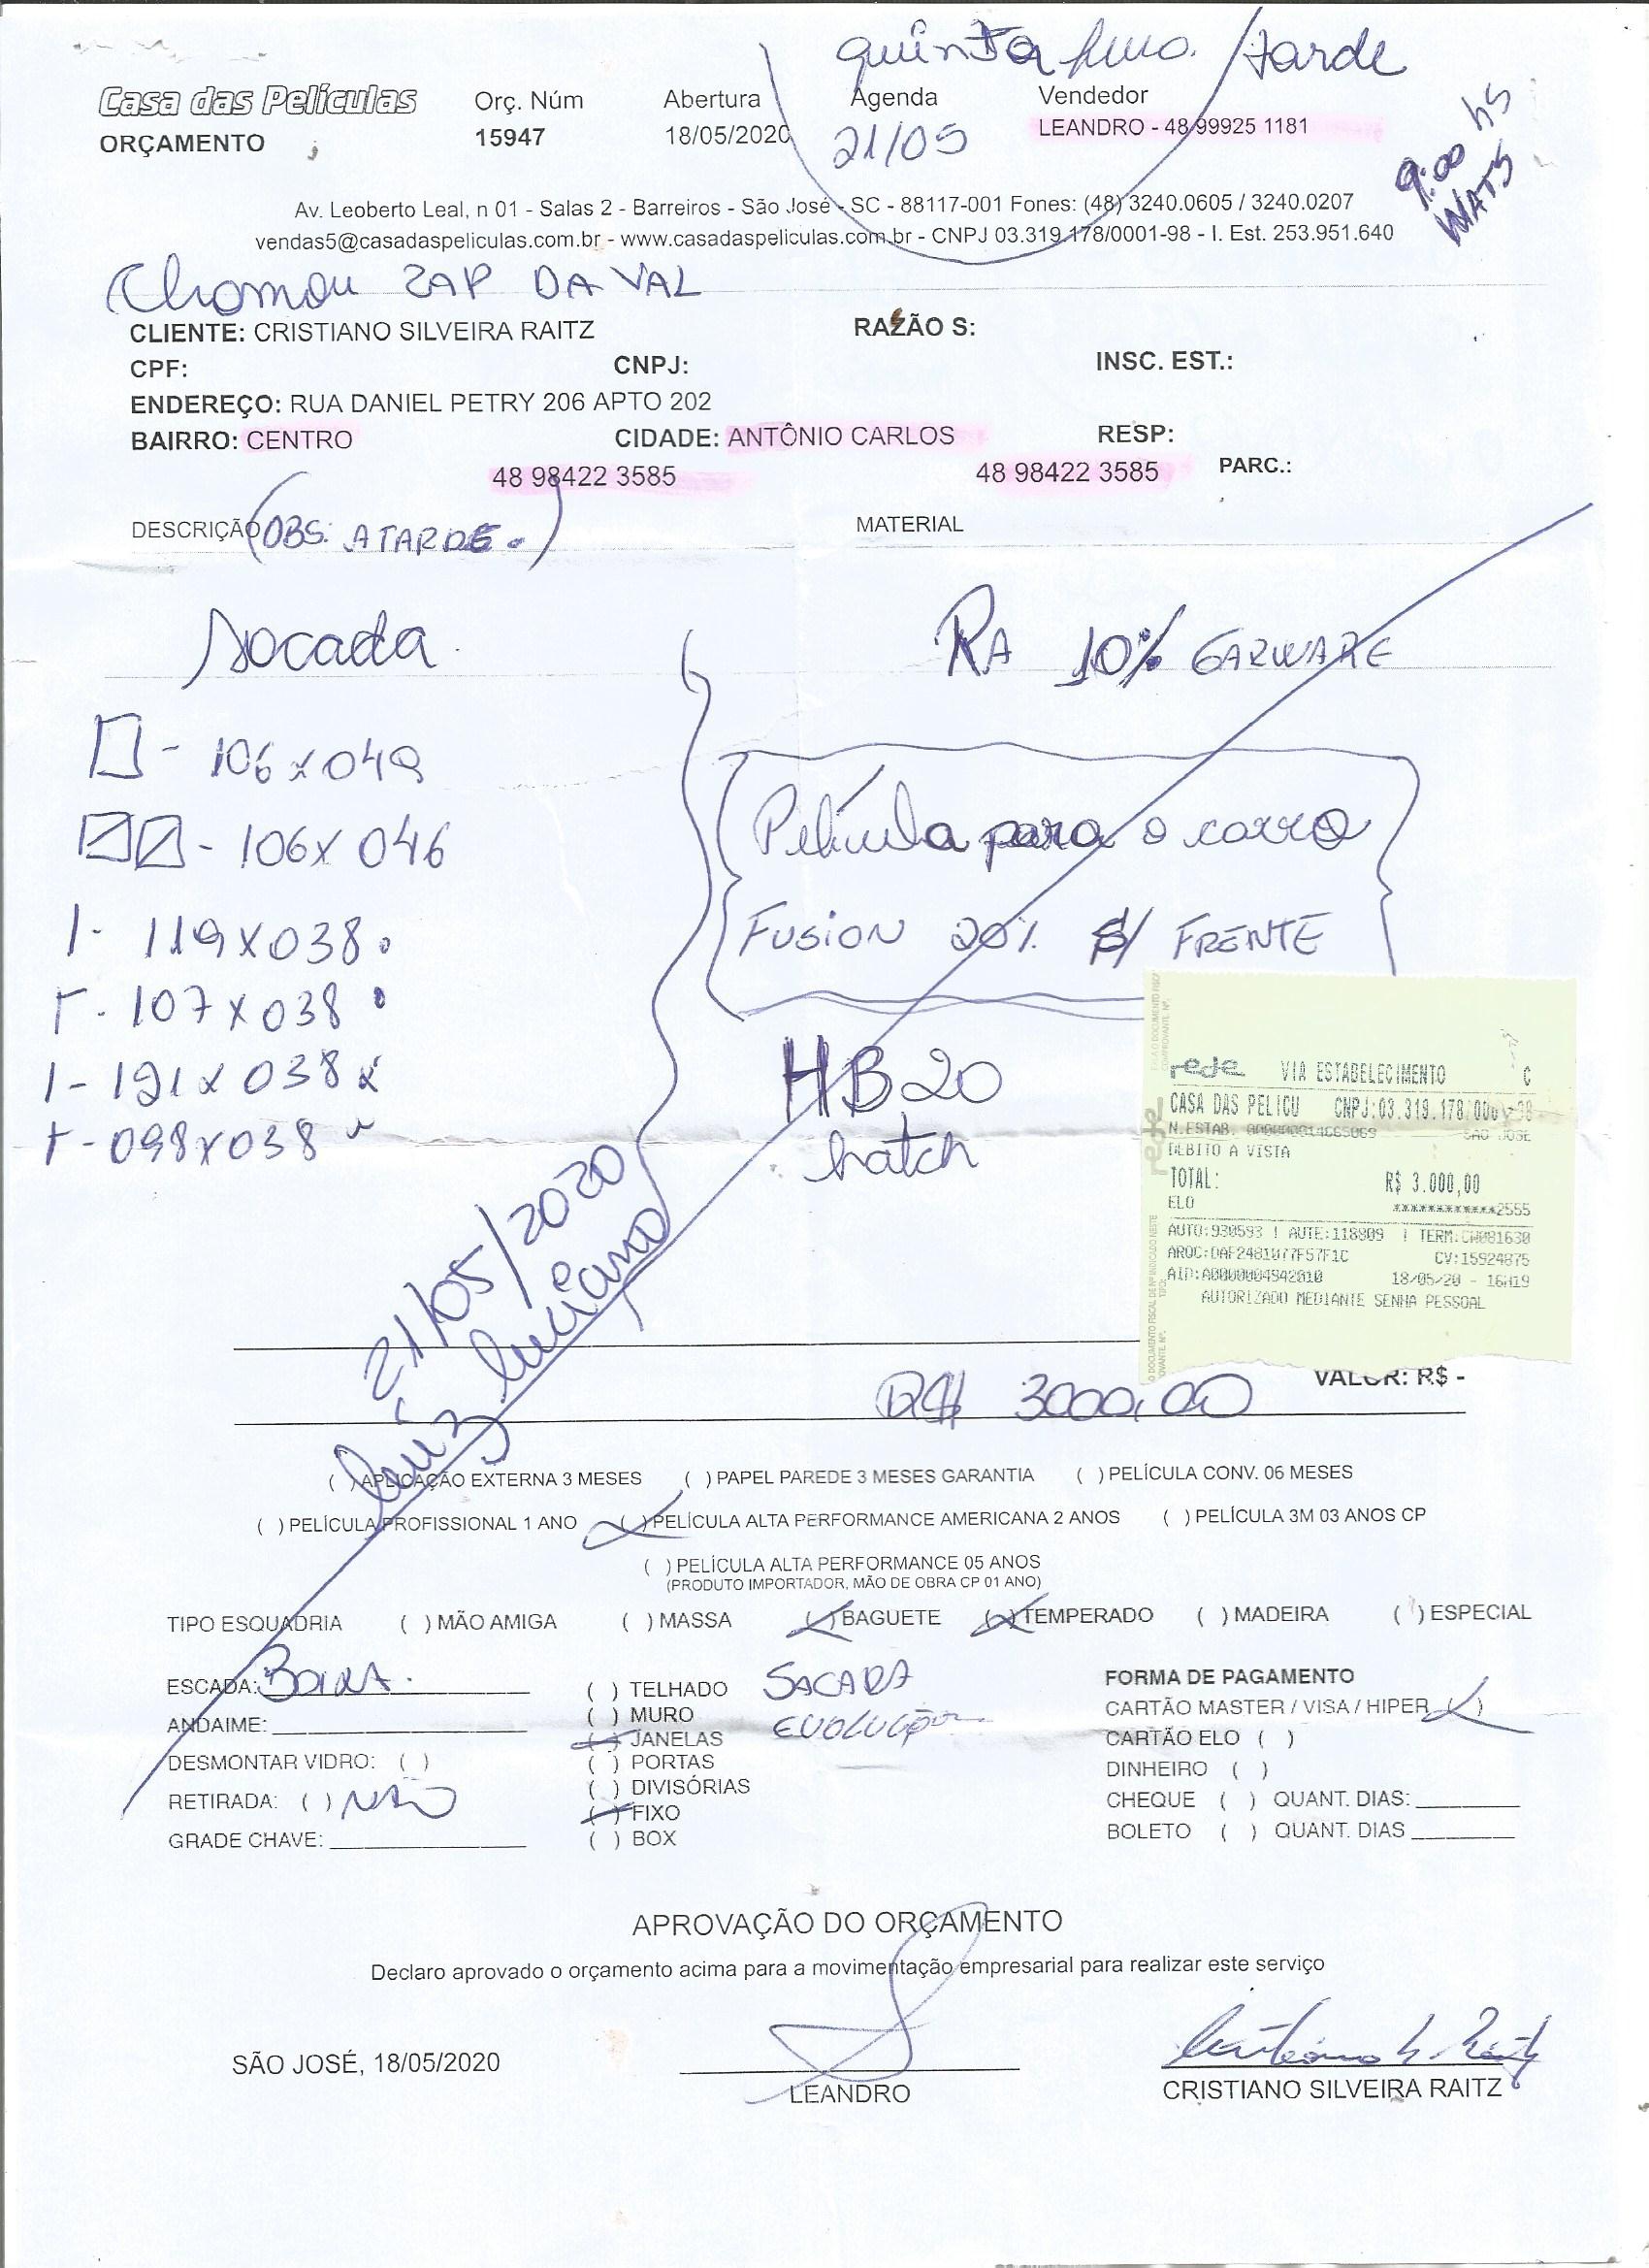 quinta feira. / tarde
Casa das Películas
ORÇAMENTO
Orç. Núm
15947
Abertura
18/05/2020
Agenda
21/05
Vendedor
LEANDRO - 48 99925 1181
9:00 hs
WATS
Av. Leoberto Leal, n 01 - Salas 2 - Barreiros - São José - SC - 88117-001 Fones: (48) 3240.0605 / 3240.0207
vendas5@casadaspeliculas.com.br - www.casadaspeliculas.com.br - CNPJ 03.319.178/0001-98 - I. Est. 253.951.640
Chamou ZAP DA VAL
CLIENTE: CRISTIANO SILVEIRA RAITZ RAZÃO S:
CPF: CNPJ: INSC. EST.:
ENDEREÇO: RUA DANIEL PETRY 206 APTO 202
BAIRRO: CENTRO CIDADE: ANTÔNIO CARLOS RESP:
48 98422 3585 48 98422 3585 PARC.:
DESCRIÇÃO (OBS: A TARDE.) MATERIAL
Sacada RA 10% GARWARE
- 106 x 049
- 106 x 046
Película para o carro
Fusion 20% S/ FRENTE
I - 119 x 038
T - 107 x 038
I - 121 x 038
T - 098 x 038
HB20
hatch
21/05/2020
Luiz Luciano
rede VIA ESTABELECIMENTO C
CASA DAS PELICU CNPJ:03.319.178/0001-98
N.ESTAB. SAO JOSE
DEBITO A VISTA
TOTAL: R$ 3.000,00
ELO ************2555
AUTO:930593 | AUTE:118809 | TERM:CW081630
CV:15924875
18/05/20 - 16H19
AUTORIZADO MEDIANTE SENHA PESSOAL
VALOR: R$ -
R$ 3000,00
( ) APLICAÇÃO EXTERNA 3 MESES ( ) PAPEL PAREDE 3 MESES GARANTIA ( ) PELÍCULA CONV. 06 MESES
( ) PELÍCULA PROFISSIONAL 1 ANO ( ) PELÍCULA ALTA PERFORMANCE AMERICANA 2 ANOS ( ) PELÍCULA 3M 03 ANOS CP
( ) PELÍCULA ALTA PERFORMANCE 05 ANOS
(PRODUTO IMPORTADOR, MÃO DE OBRA CP 01 ANO)
TIPO ESQUADRIA ( ) MÃO AMIGA ( ) MASSA ( ) BAGUETE ( ) TEMPERADO ( ) MADEIRA ( ) ESPECIAL
ESCADA:
ANDAIME:
DESMONTAR VIDRO: ( )
RETIRADA: ( ) NÃO
GRADE CHAVE:
( ) TELHADO
( ) MURO
( ) JANELAS
( ) PORTAS
( ) DIVISÓRIAS
( ) FIXO
( ) BOX
SACADA
EVOLUÇÃO
FORMA DE PAGAMENTO
CARTÃO MASTER / VISA / HIPER ( )
CARTÃO ELO ( )
DINHEIRO ( )
CHEQUE ( ) QUANT. DIAS:
BOLETO ( ) QUANT. DIAS
APROVAÇÃO DO ORÇAMENTO
Declaro aprovado o orçamento acima para a movimentação empresarial para realizar este serviço
SÃO JOSÉ, 18/05/2020
LEANDRO
CRISTIANO SILVEIRA RAITZ